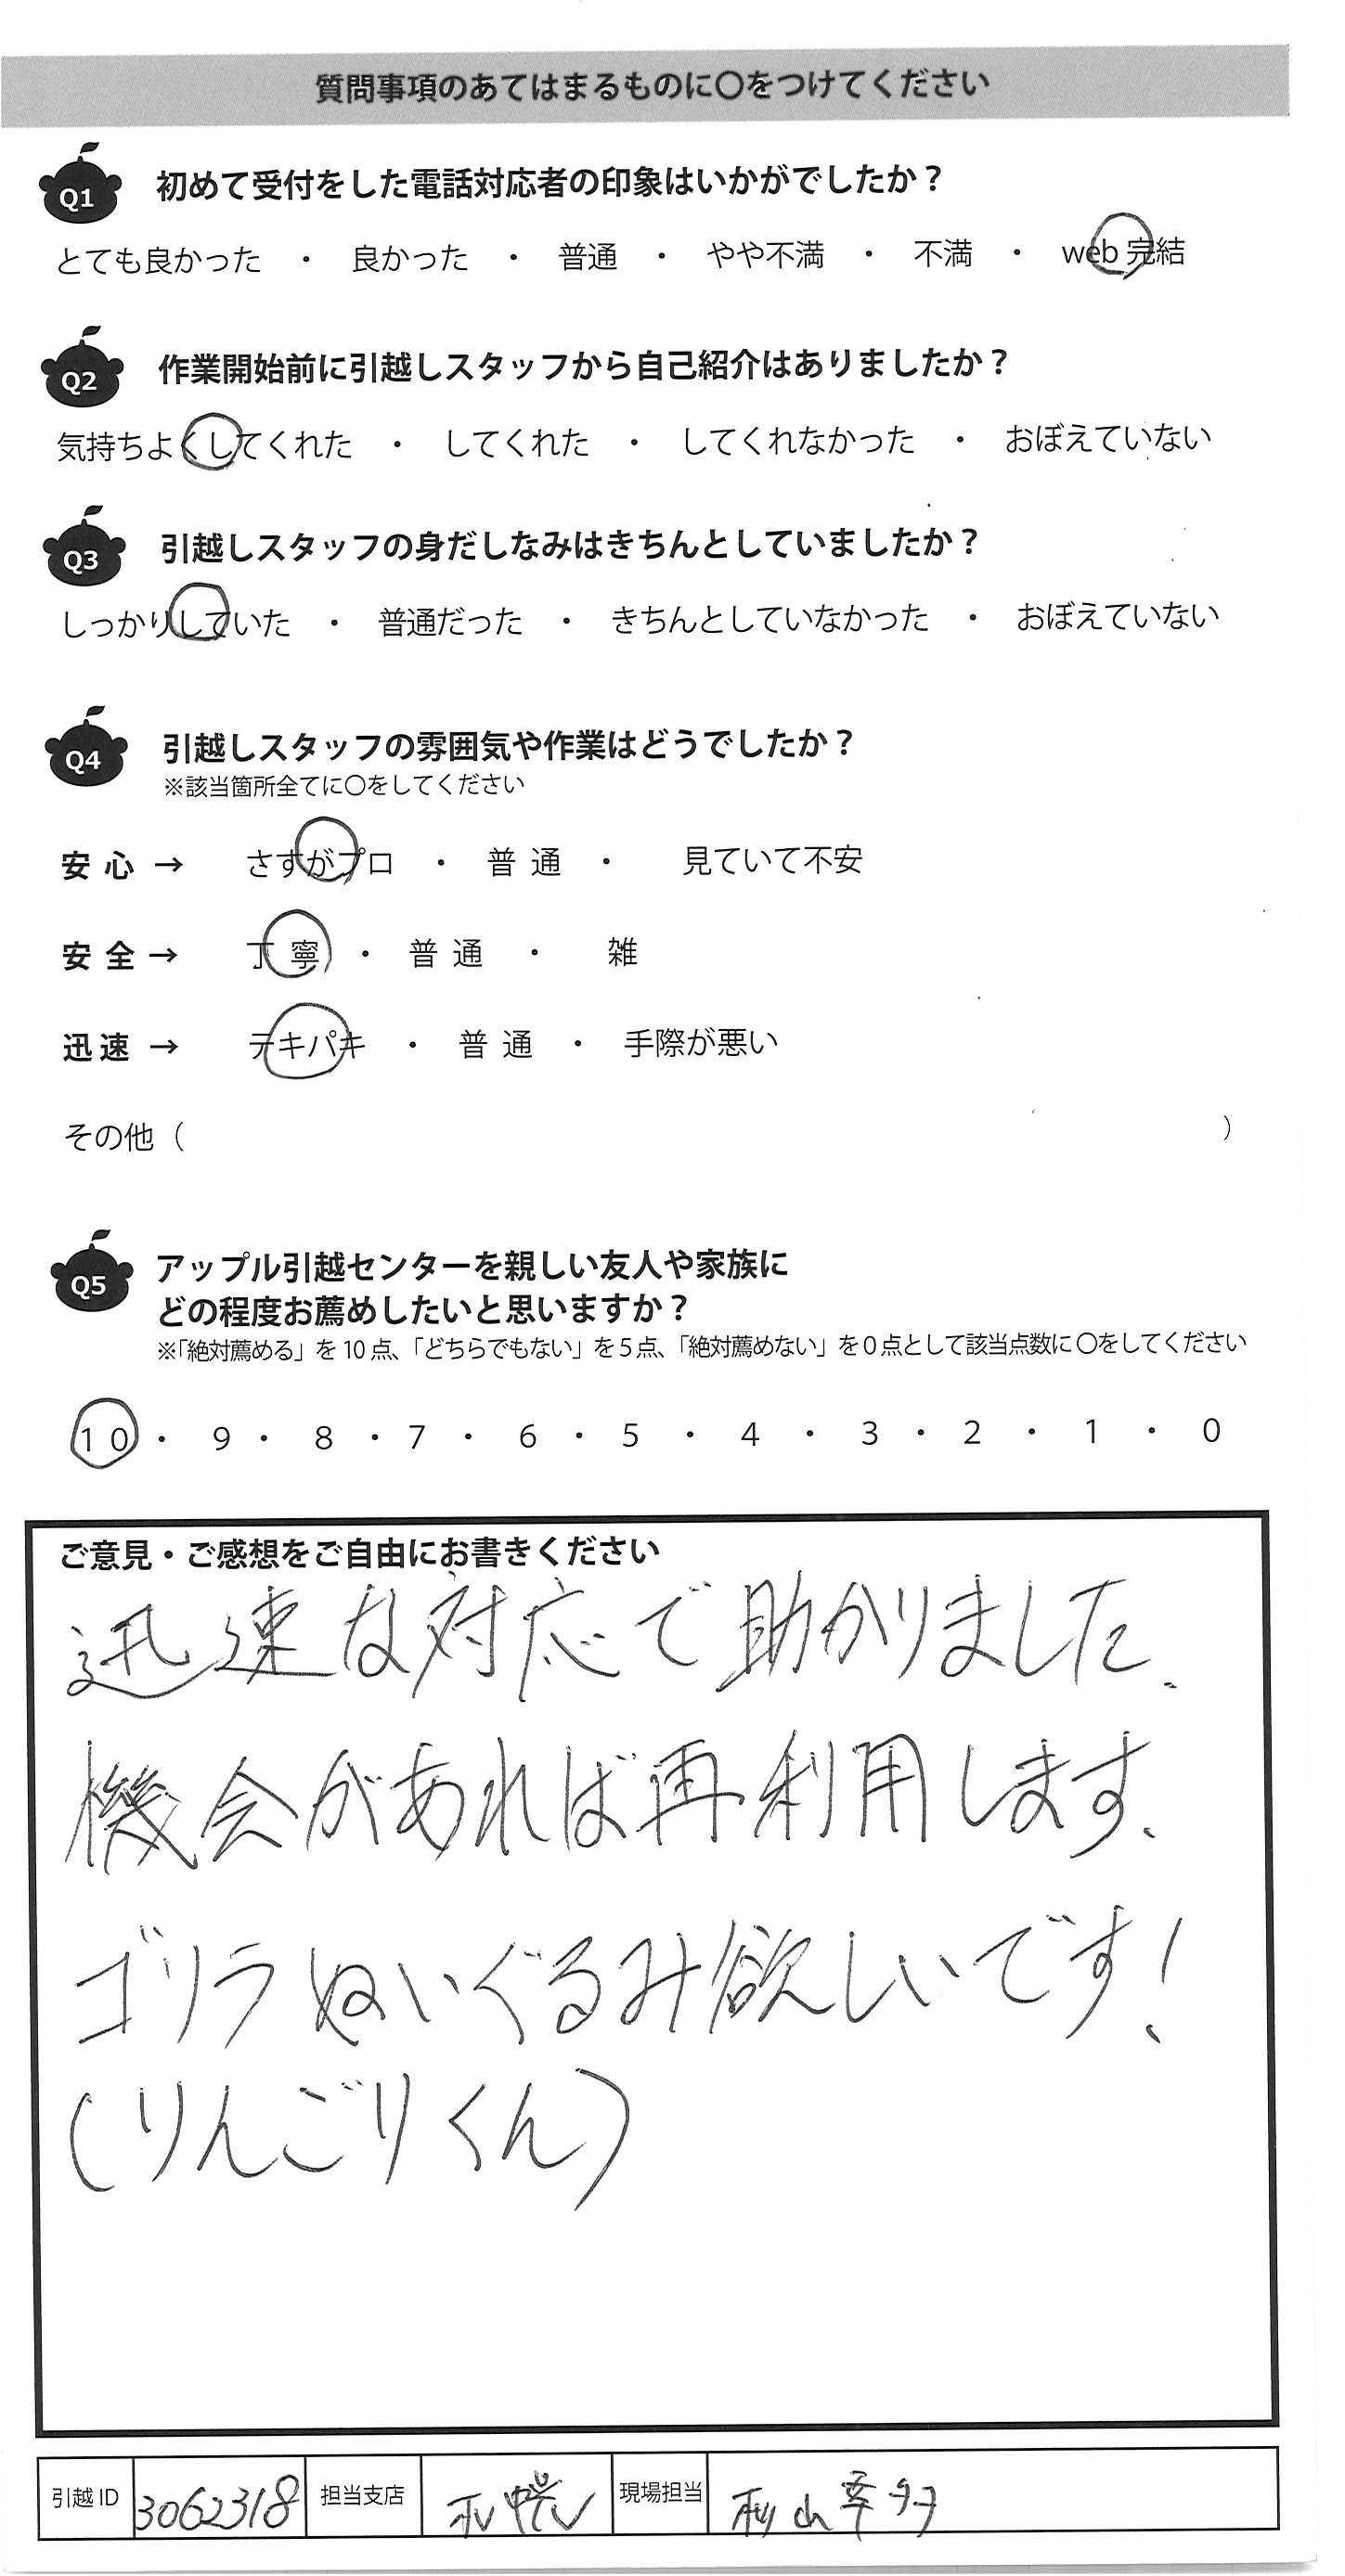 質問事項のあてはまるものに〇をつけてください
Q1 初めて受付をした電話対応者の印象はいかがでしたか?
とても良かった ・ 良かった ・ 普通 ・ やや不満 ・ 不満 ・ web 完結
Q2 作業開始前に引越しスタッフから自己紹介はありましたか?
気持ちよくしてくれた ・ してくれた ・ してくれなかった ・ おぼえていない
Q3 引越しスタッフの身だしなみはきちんとしていましたか?
しっかりしていた ・ 普通だった ・ きちんとしていなかった ・ おぼえていない
Q4 引越しスタッフの雰囲気や作業はどうでしたか?
※該当箇所全てに〇をしてください
安心 → さすがプロ ・ 普通 ・ 見ていて不安
安全 → 丁寧 ・ 普通 ・ 雑
迅速 → テキパキ ・ 普通 ・ 手際が悪い
その他( )
Q5 アップル引越センターを親しい友人や家族に
どの程度お薦めしたいと思いますか?
※「絶対薦める」を10点、「どちらでもない」を5点、「絶対薦めない」を0点として該当点数に〇をしてください
10 ・ 9 ・ 8 ・ 7 ・ 6 ・ 5 ・ 4 ・ 3 ・ 2 ・ 1 ・ 0
ご意見・ご感想をご自由にお書きください
迅速な対応で助かりました。
機会があれば再利用します。
ゴリラぬいぐるみ欲しいです!
(りんごりくん)
引越ID 3062318 担当支店 現場担当